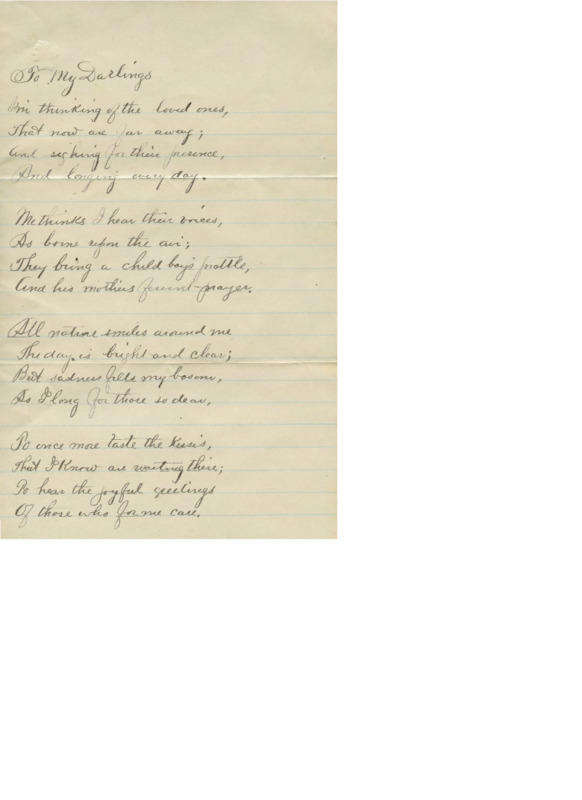 To My Darlings
I'm thinking of the loved ones,
That now are far away;
And sighing for their presence,
And longing every day.
Methinks I hear their voices,
As borne upon the air;
They bring a child boy's prattle,
And his mothers fervent prayer.
All nature smiles around me
The day is bright and clear;
But sadness fills my bosom,
As I long for those so dear,
To once more taste the kisses,
That I know are waiting there;
To hear the joyful greetings
Of those who for me care.